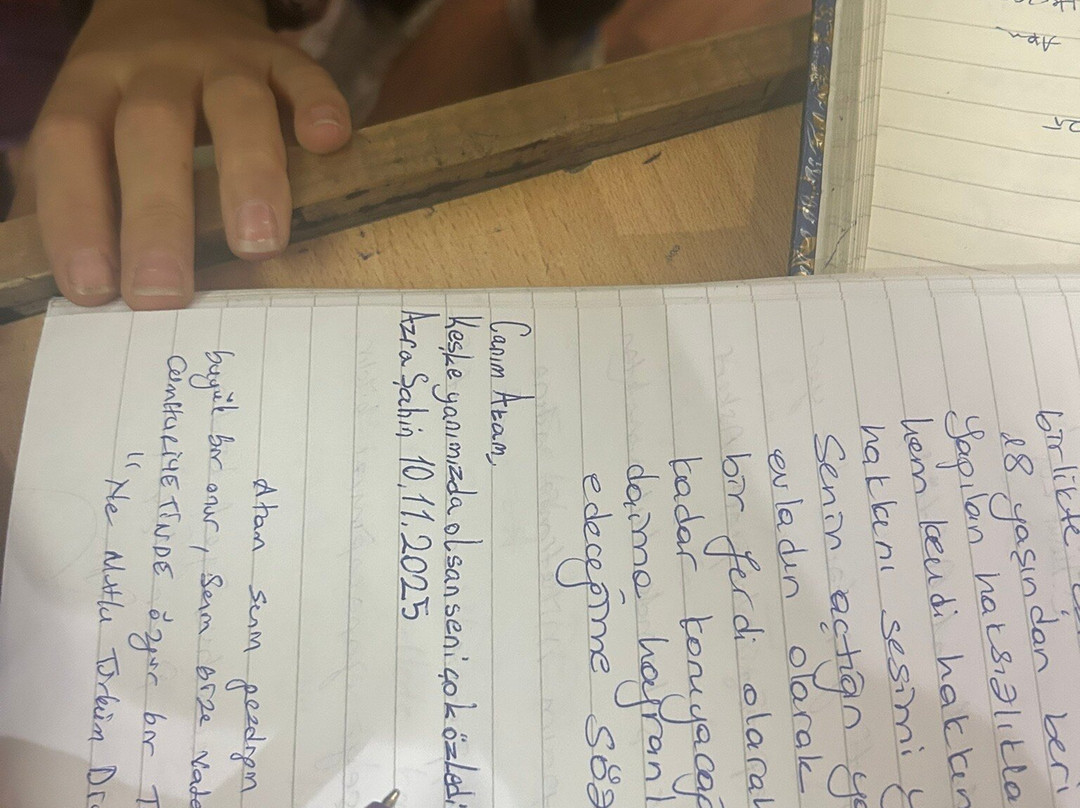 birlikte
28 yaşından beri
Yapılan haksızlıkla
hem kendi hakkın
hakkını sesimi
Senin açtığın
evladın olarak
bir ferdi olarak
kadar koruyacağ
daima hayran
edeceğime söz
Canım Atam,
Keşke yanımızda olsan seni çok özledi
Azra Şahin 10.11.2025
Atam senin gezdiğin
büyük bir onur, Senin bize
CUMHURİYETİNDE özgür bir T
"Ne Mutlu Türküm